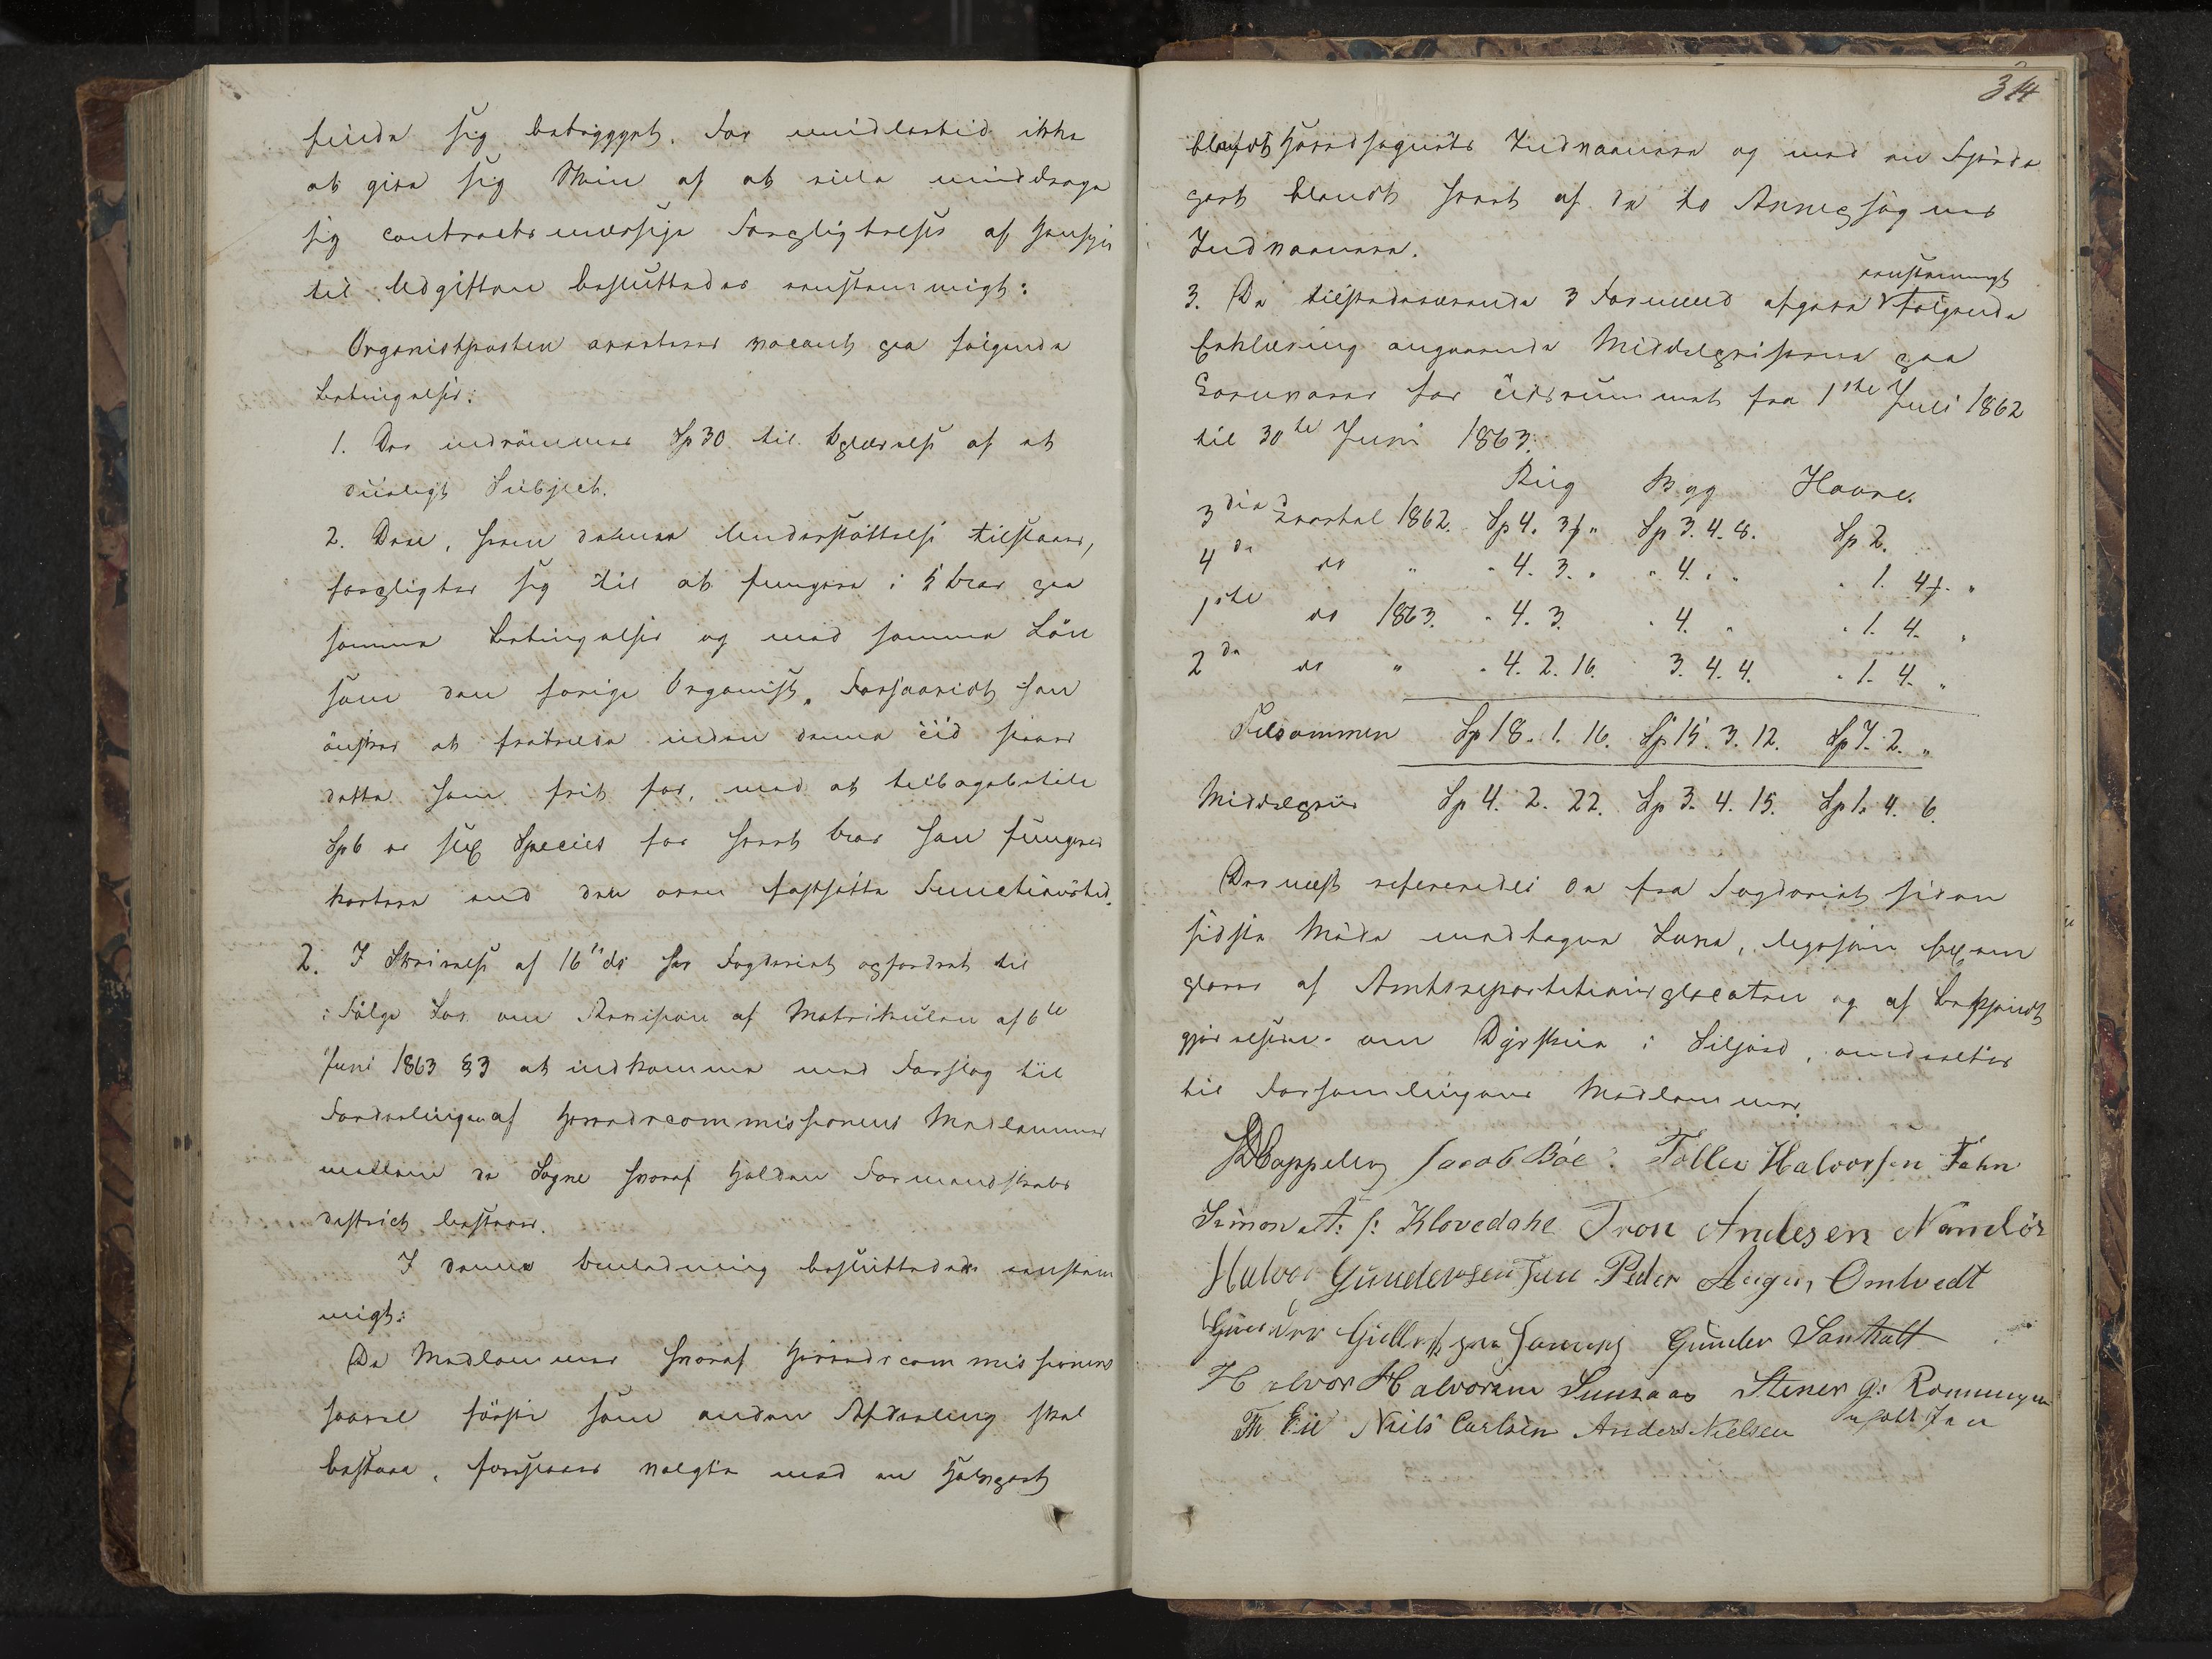 finde sig betrygget. For imidlertid ikke
at give sig Skin af at ville unddrage
sig contractsmæssige Forpligtelser af Hensyn
til Udgiften besluttedes eenstemmigt:
Organistposten averteres vacant paa følgende
Betingelser:
1. Der indrømmes Sp 30 til Oplærelse af et
dueligt Subject.
2. Den, hvem denne Understøttelse tilstaaes,
forpligter sig til at fungere i 5 Aar paa
samme Betingelser og med samme Løn
som den forige Organist. Forsaavidt han
ønsker at fratræde inden denne Tid staaer
dette ham frit for, med at tilbagebetale
Sp 6 er sex Species for hvert Aar han fungerer
kortere end den oven fastsatte Functionstid.
2. I Skrivelse af 16de ds har Fogderiet opfordret til
i Følge Lov om Revision af Matrikulen af 6te
Juni 1863 §3 at indkomme med Forslag til
Fordelingen af Herredscommissionens Medlemmer
mellem de Sogne hvoraf Holden Formandskabs
district bestaaer.
I denne Anledning besluttedes eenstem
migt:
De Medlemmer hvoraf Herredscommissionens
saavel første som anden Afdeling skal
bestaae, foreslaaes valgte med en Halvpart
314
blandt Hovedsognets Indvaanere og med en Fjerde
part blandt hvert af de to Annexsognes
Indvaanere.
3. De tilstedeværende 3 Formænd afgave eenstemmigt følgende
Erklæring angaaende Middelpriserne paa
Kornvarer for Tidsrummet fra 1ste Juli 1862
til 30te Juni 1863:
Rug Byg Havre.
3die Qvartal 1862. Sp 4. 3 ƒ " Sp 3. 4. 8. Sp 2.
4de do " " 4. 3. " " 4. " " " 1. 4 ƒ. "
1ste do 1863. " 4. 3. " 4. " " 1. 4. "
2de do " " 4. 2. 16. 3. 4. 4. " 1. 4. "
Tilsammen Sp 18. 1. 16. Sp 15. 3. 12. Sp 7. 2. "
Middelpriis Sp 4. 2. 22. Sp 3. 4. 15. Sp 1. 4. 6.
Dernæst refereredes de fra Fogderiet siden
sidste Møde modtagne Love, ligesom Exem
plarer af Amtsrepartitionsplacaten og af Bekjendt
gjørelsen om Dyrskue i Siljord, omdeeltes
til Forsamlingens Medlemmer.
Cappelen Jacob Bøe. Tollev Halvorsen Fehn
Simon A: s: Klovedahl Tron Andesen Namløs
Halvor Gundersen Peder Aug Omtvedt
Gunder Gunder
Halvor Halvorsen Sunsaas Stener G: Rønningen
Th Eie Niels Carlsen Anders Nielsen